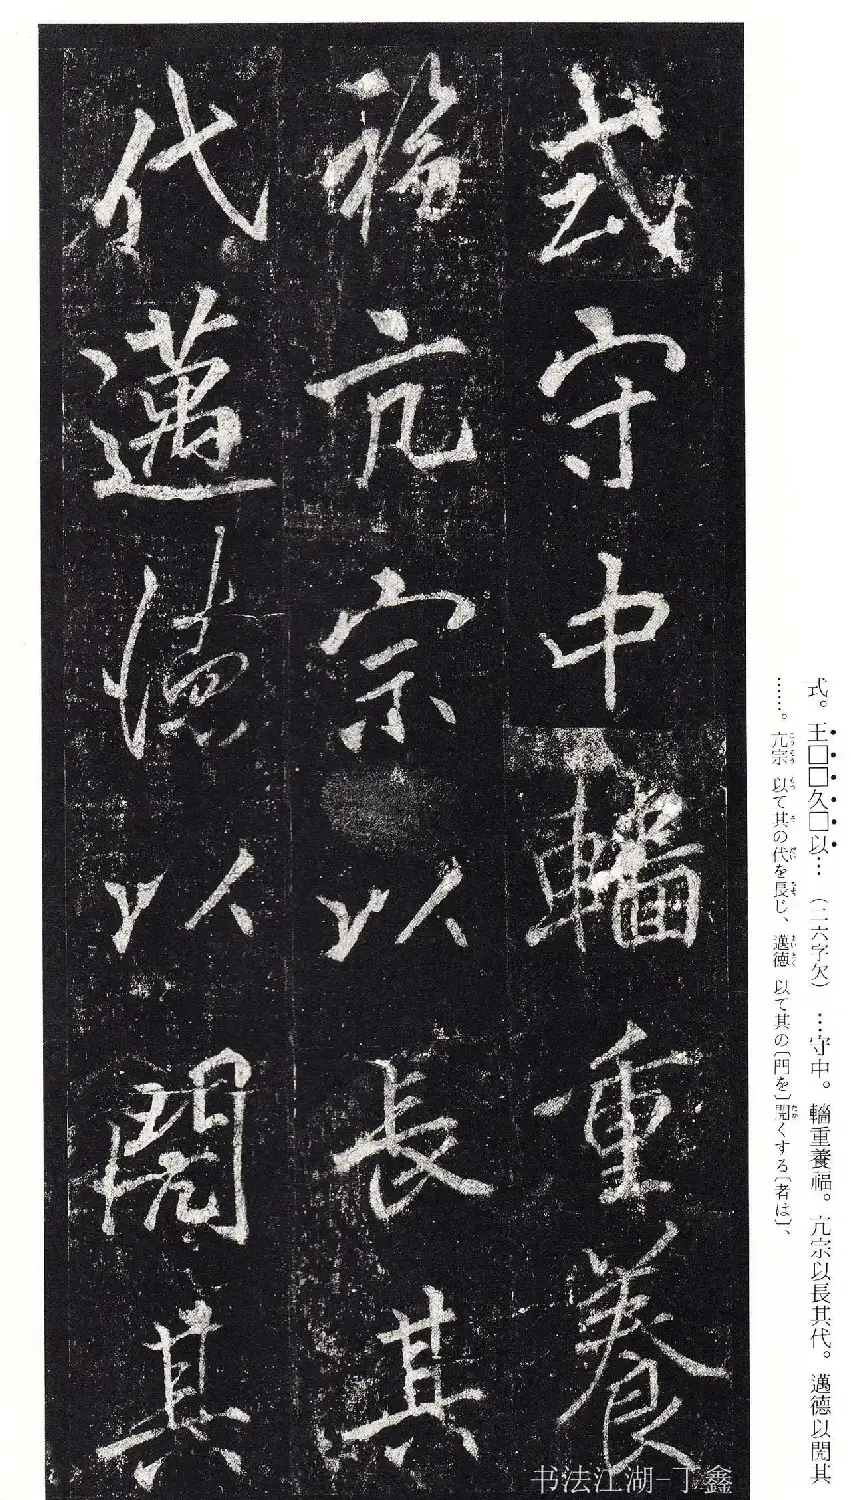 式。王□□久□以…（二六字欠）…守中。輜重養福。亢宗以長其代。邁德以閌其
……。亢宗 以て其の代を長じ、邁徳 以て其の〔門を〕閌くする〔者は〕、
式守中輜重養
福亢宗以長其
代邁德以閌其
书法江湖-丁鑫